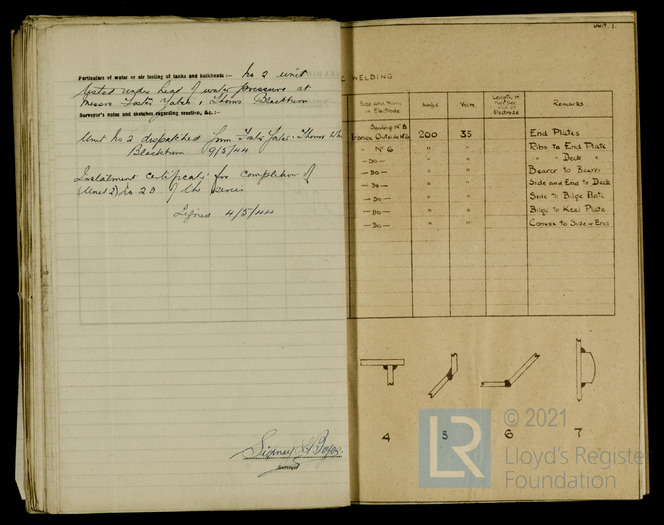 Particulars of water or air testing of tanks and bulkheads:— No 2 unit
tested under head of water pressure at
Messrs Foster Yates & Thoms Blackburn
Surveyor's notes and sketches, regarding erection, &c.:—
Unit No 2 dispatched from Foster Yates Thoms
Blackburn 9/5/44
Instalment certificate for completion of
(Unit 2) No 2D of the series
Signed 4/5/44
Surveyor
UNIT. 2.
WELDING
Size and Name of Electrode Amps Volts Length of Run Per Electrode Remarks
Sealing Nº 8 200 35 End Plates
Nº 6 " " Ribs to End Plate
— Do — " " " " Deck "
— Do — " " Bearer to Bearer
— Do — " " Side and End to Deck
— Do — " " Side to Bilge Plate
— Do — " " Bilge to Keel Plate
— Do — " " Convex to Side & End
4 5 6 7
LR © 2021
Lloyd's Register
Foundation